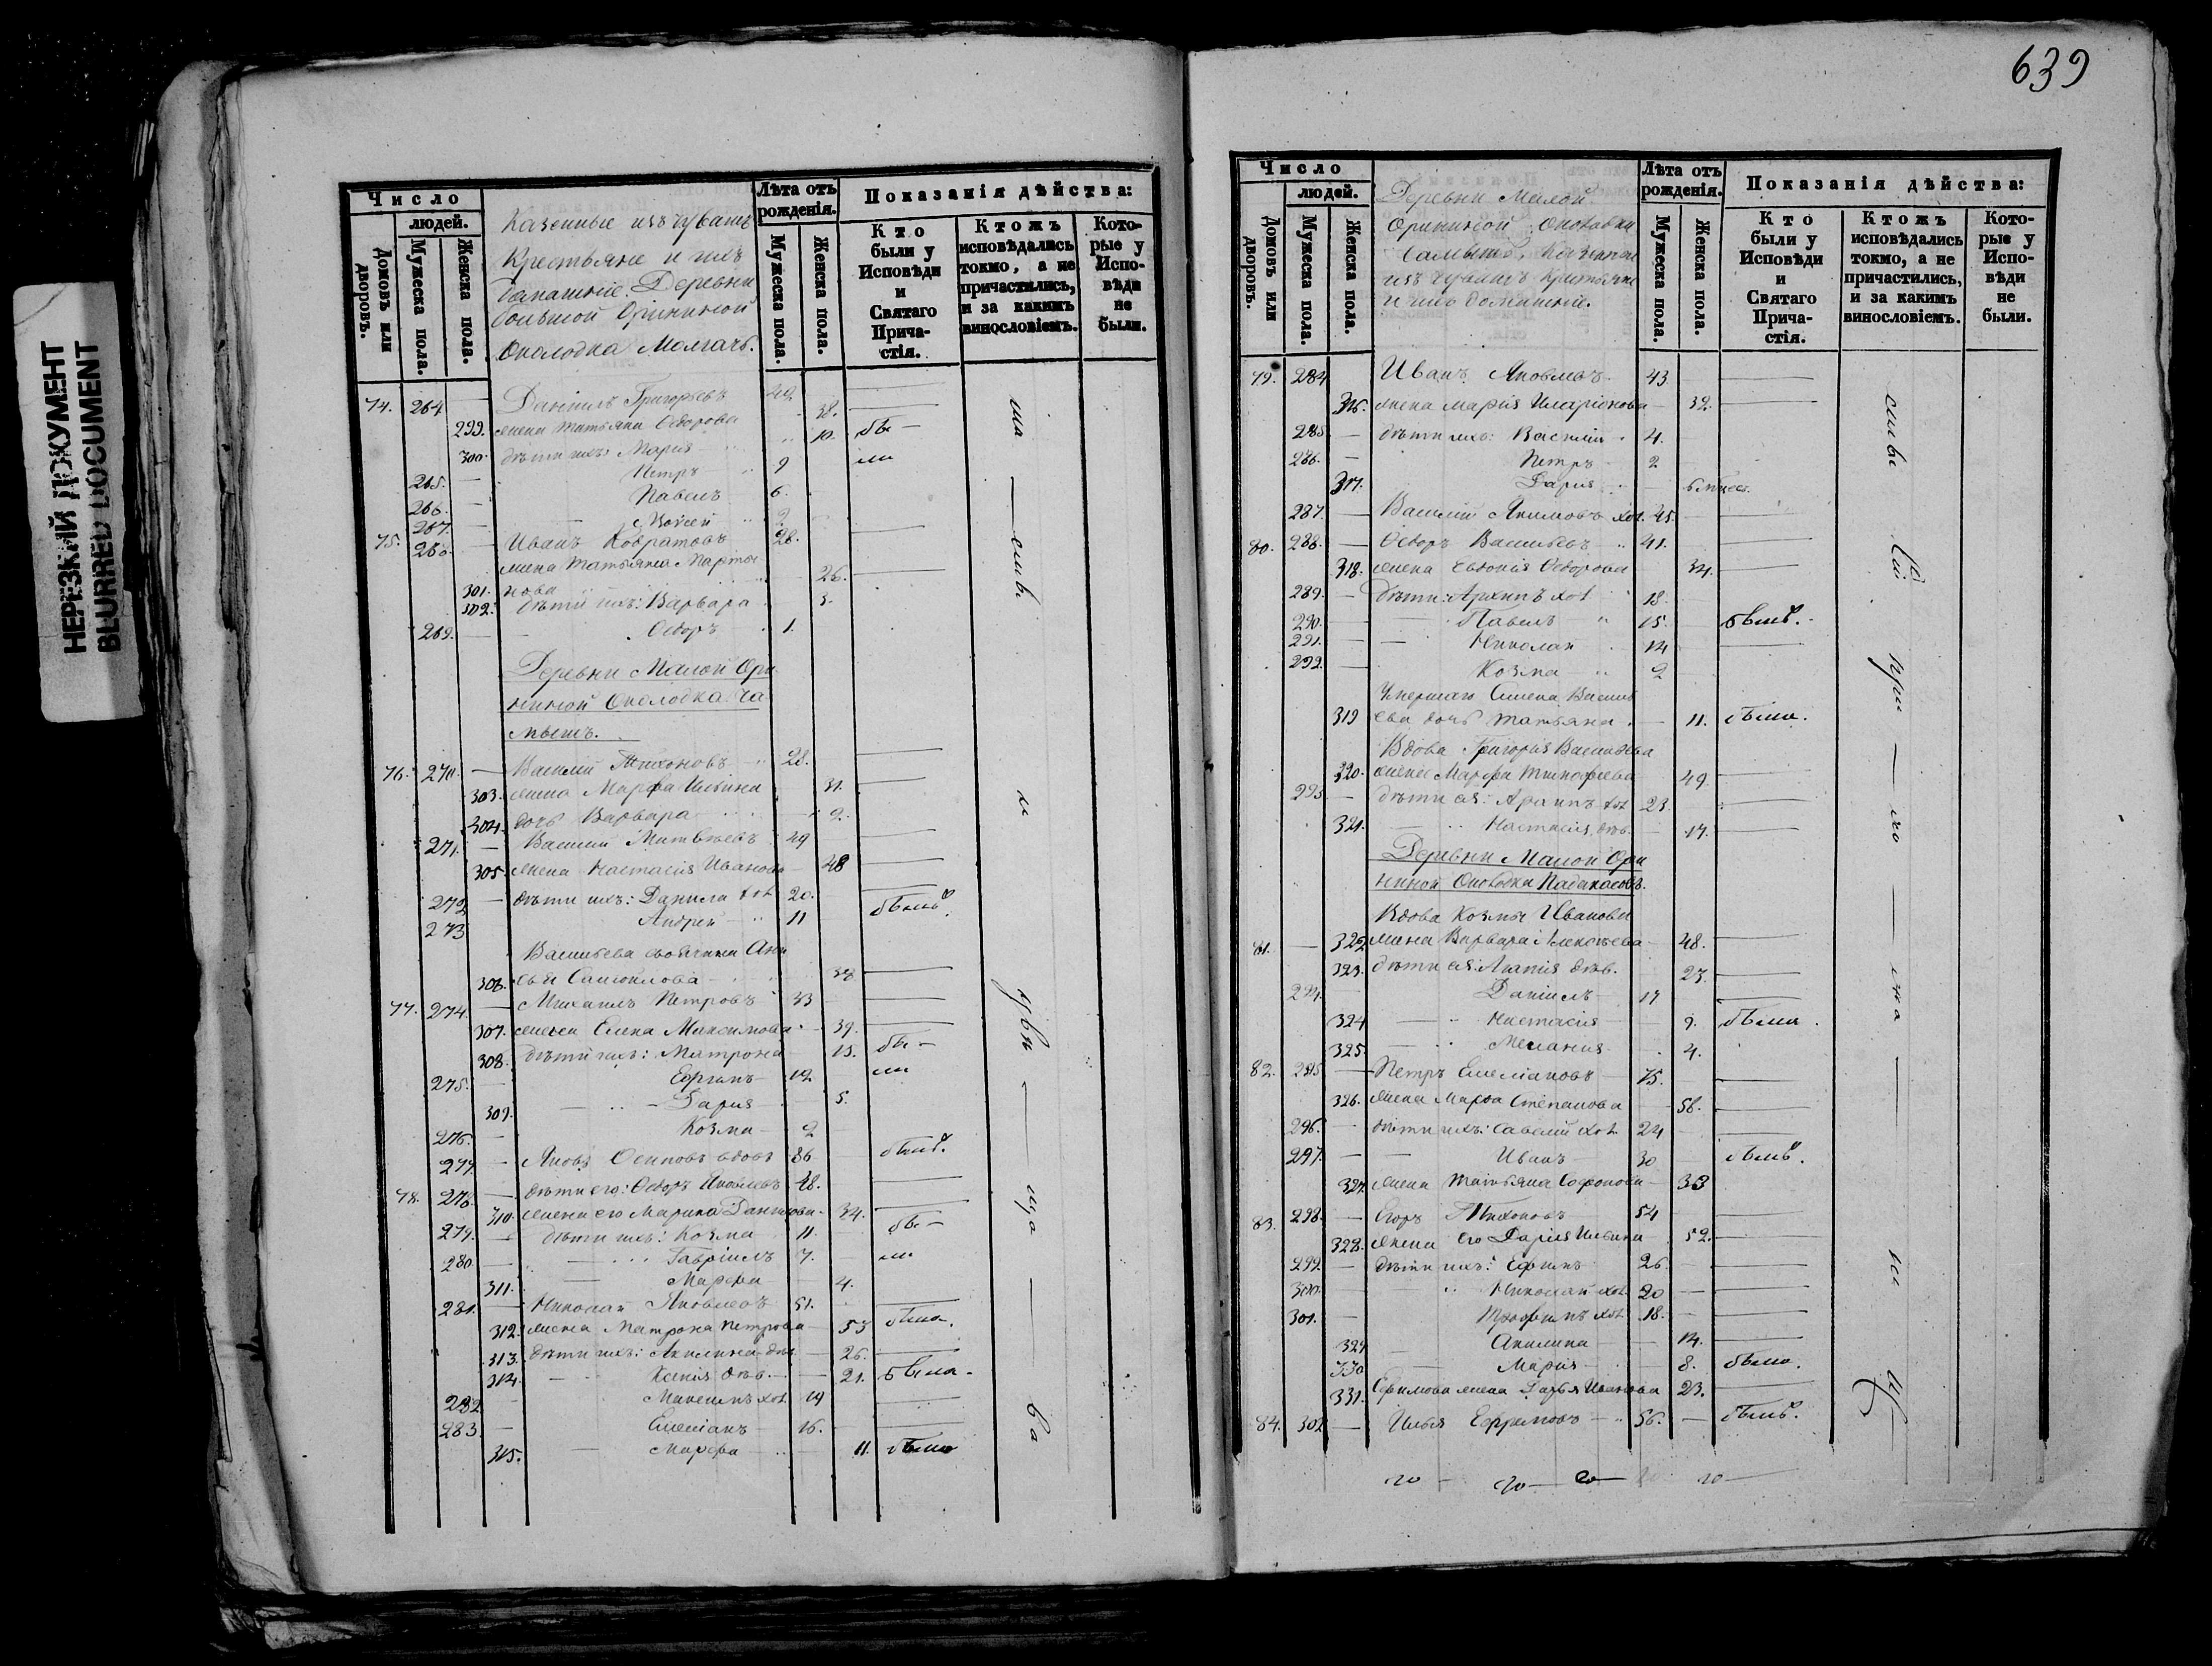 НЕРЕЗКИЙ ДОКУМЕНТ
BLURRED DOCUMENT
Число
людей.
Домовъ или дворовъ.
Мужеска пола.
Женска пола.
Казенные изъ чувашъ
Крестьяне и ихъ
домашніе. Деревни
большой Орининой
Околодка
Лѣта отъ рожденія.
Мужеска пола.
Женска пола.
Показанія дѣйства:
Кто были у Исповѣди и Святаго Причастія.
Ктожъ исповѣдались токмо, а не причастились, и за какимъ винословіемъ.
Которые у Исповѣди не были.
74. 264 — Даніилъ Григорьевъ 42
299. жена Татьяна Ѳедорова 38.
300. дѣти ихъ: Марія 10. бы-
265. — Петръ 9 ли
266. — Павелъ 6.
267. — Моисей 2
75. 268. — Иванъ 28.
жена Татьяна
301. нова 26.
302. дѣти ихъ: Варвара 3.
269. — Ѳедоръ 1.
Деревни Малой Ори
ниной Околодка
76. 270. — Василій Тихоновъ 28.
303. жена Марфа Ильина 31.
304. дочь Варвара 2.
271. — Василій Матвѣевъ 49
305. жена Настасія Иванова 48
272. — дѣти ихъ: Данила хол. 20.
273 Андрей 11 былъ.
Васильева своячина
306. 38
77. 274. — Михаилъ Петровъ 33
307. жена Елена Максимова 39.
308. дѣти ихъ: Матрона 15. бы-
275. Ефимъ 12 ли
309. Дарія 5.
276. — Козма 2
277. — Яковъ Осиповъ вдовъ 86 былъ.
78. 278. — дѣти его: Ѳедоръ Яковлевъ 48.
310. жена его Марина Данилова 34.
279. — дѣти ихъ: Козма 11. бы-
280 — Гавріилъ 7. ли
311. Марфа 4.
281. — Николай Яковлевъ 51.
312. жена Матрона Петрова 53 была.
313. дѣти ихъ: Акилина дѣв. 26.
314. Ксенія дѣв. 21. была.
282 Максимъ хол. 19
283. — Емеліанъ 16.
315. — Марфа 11. была
639
Число
людей.
Домовъ или дворовъ.
Мужеска пола.
Женска пола.
Деревни Малой
Орининой Околодка
Казенные
изъ чувашъ Крестьяне
и ихъ домашніе.
Лѣта отъ рожденія.
Мужеска пола.
Женска пола.
Показанія дѣйства:
Кто были у Исповѣди и Святаго Причастія.
Ктожъ исповѣдались токмо, а не причастились, и за какимъ винословіемъ.
Которые у Исповѣди не были.
79. 284 Иванъ Яковлевъ 43
316. жена Марія Иларіонова 32.
285. — дѣти ихъ: Василій 4.
286. — Петръ 2
317. Дарія 6 мѣсе.
287. — Василій Акимовъ хол. 45.
80. 288. — Ѳедоръ Васильевъ 41.
318. жена Евдокія Ѳедорова 34.
289. — дѣти: Архипъ хол 18.
290. — Павелъ 15. былъ.
291. — Николай 14
292. — Козма 2
Умершаго Василь
319 ева дочь Татьяна 11. была.
Вдова Григорія Васильева
320. жена Марфа Тимофѣева 49
293. — дѣти ея: хол 23.
321. Настасія дѣв. 17.
Деревни Малой Ори
ниной Околодка
Вдова Козмы Иванова
81. — 322 жена Варвара Алексѣева 48.
323. дѣти ея: дѣв. 23.
294. Даніилъ 17
324 Настасія 9. была.
325. Меланія 4.
82. 295 — Петръ Емеліановъ 75.
326. жена Марфа Степанова 58.
296. дѣти ихъ: Савелій хол. 24
297. — Иванъ 30 былъ.
327. жена Татьяна 33
83. 298. — Егоръ Тихоновъ 54
328. жена его Дарія Ильина 52.
299. — дѣти ихъ: Ефимъ 26.
300. Николай хол. 20
301. — хол. 18.
329 — Акилина 14.
330 Марія 8. была.
331. Ефимова жена Дарья Иванова 23.
84. 302 — Илья Ефремовъ 56. — былъ.